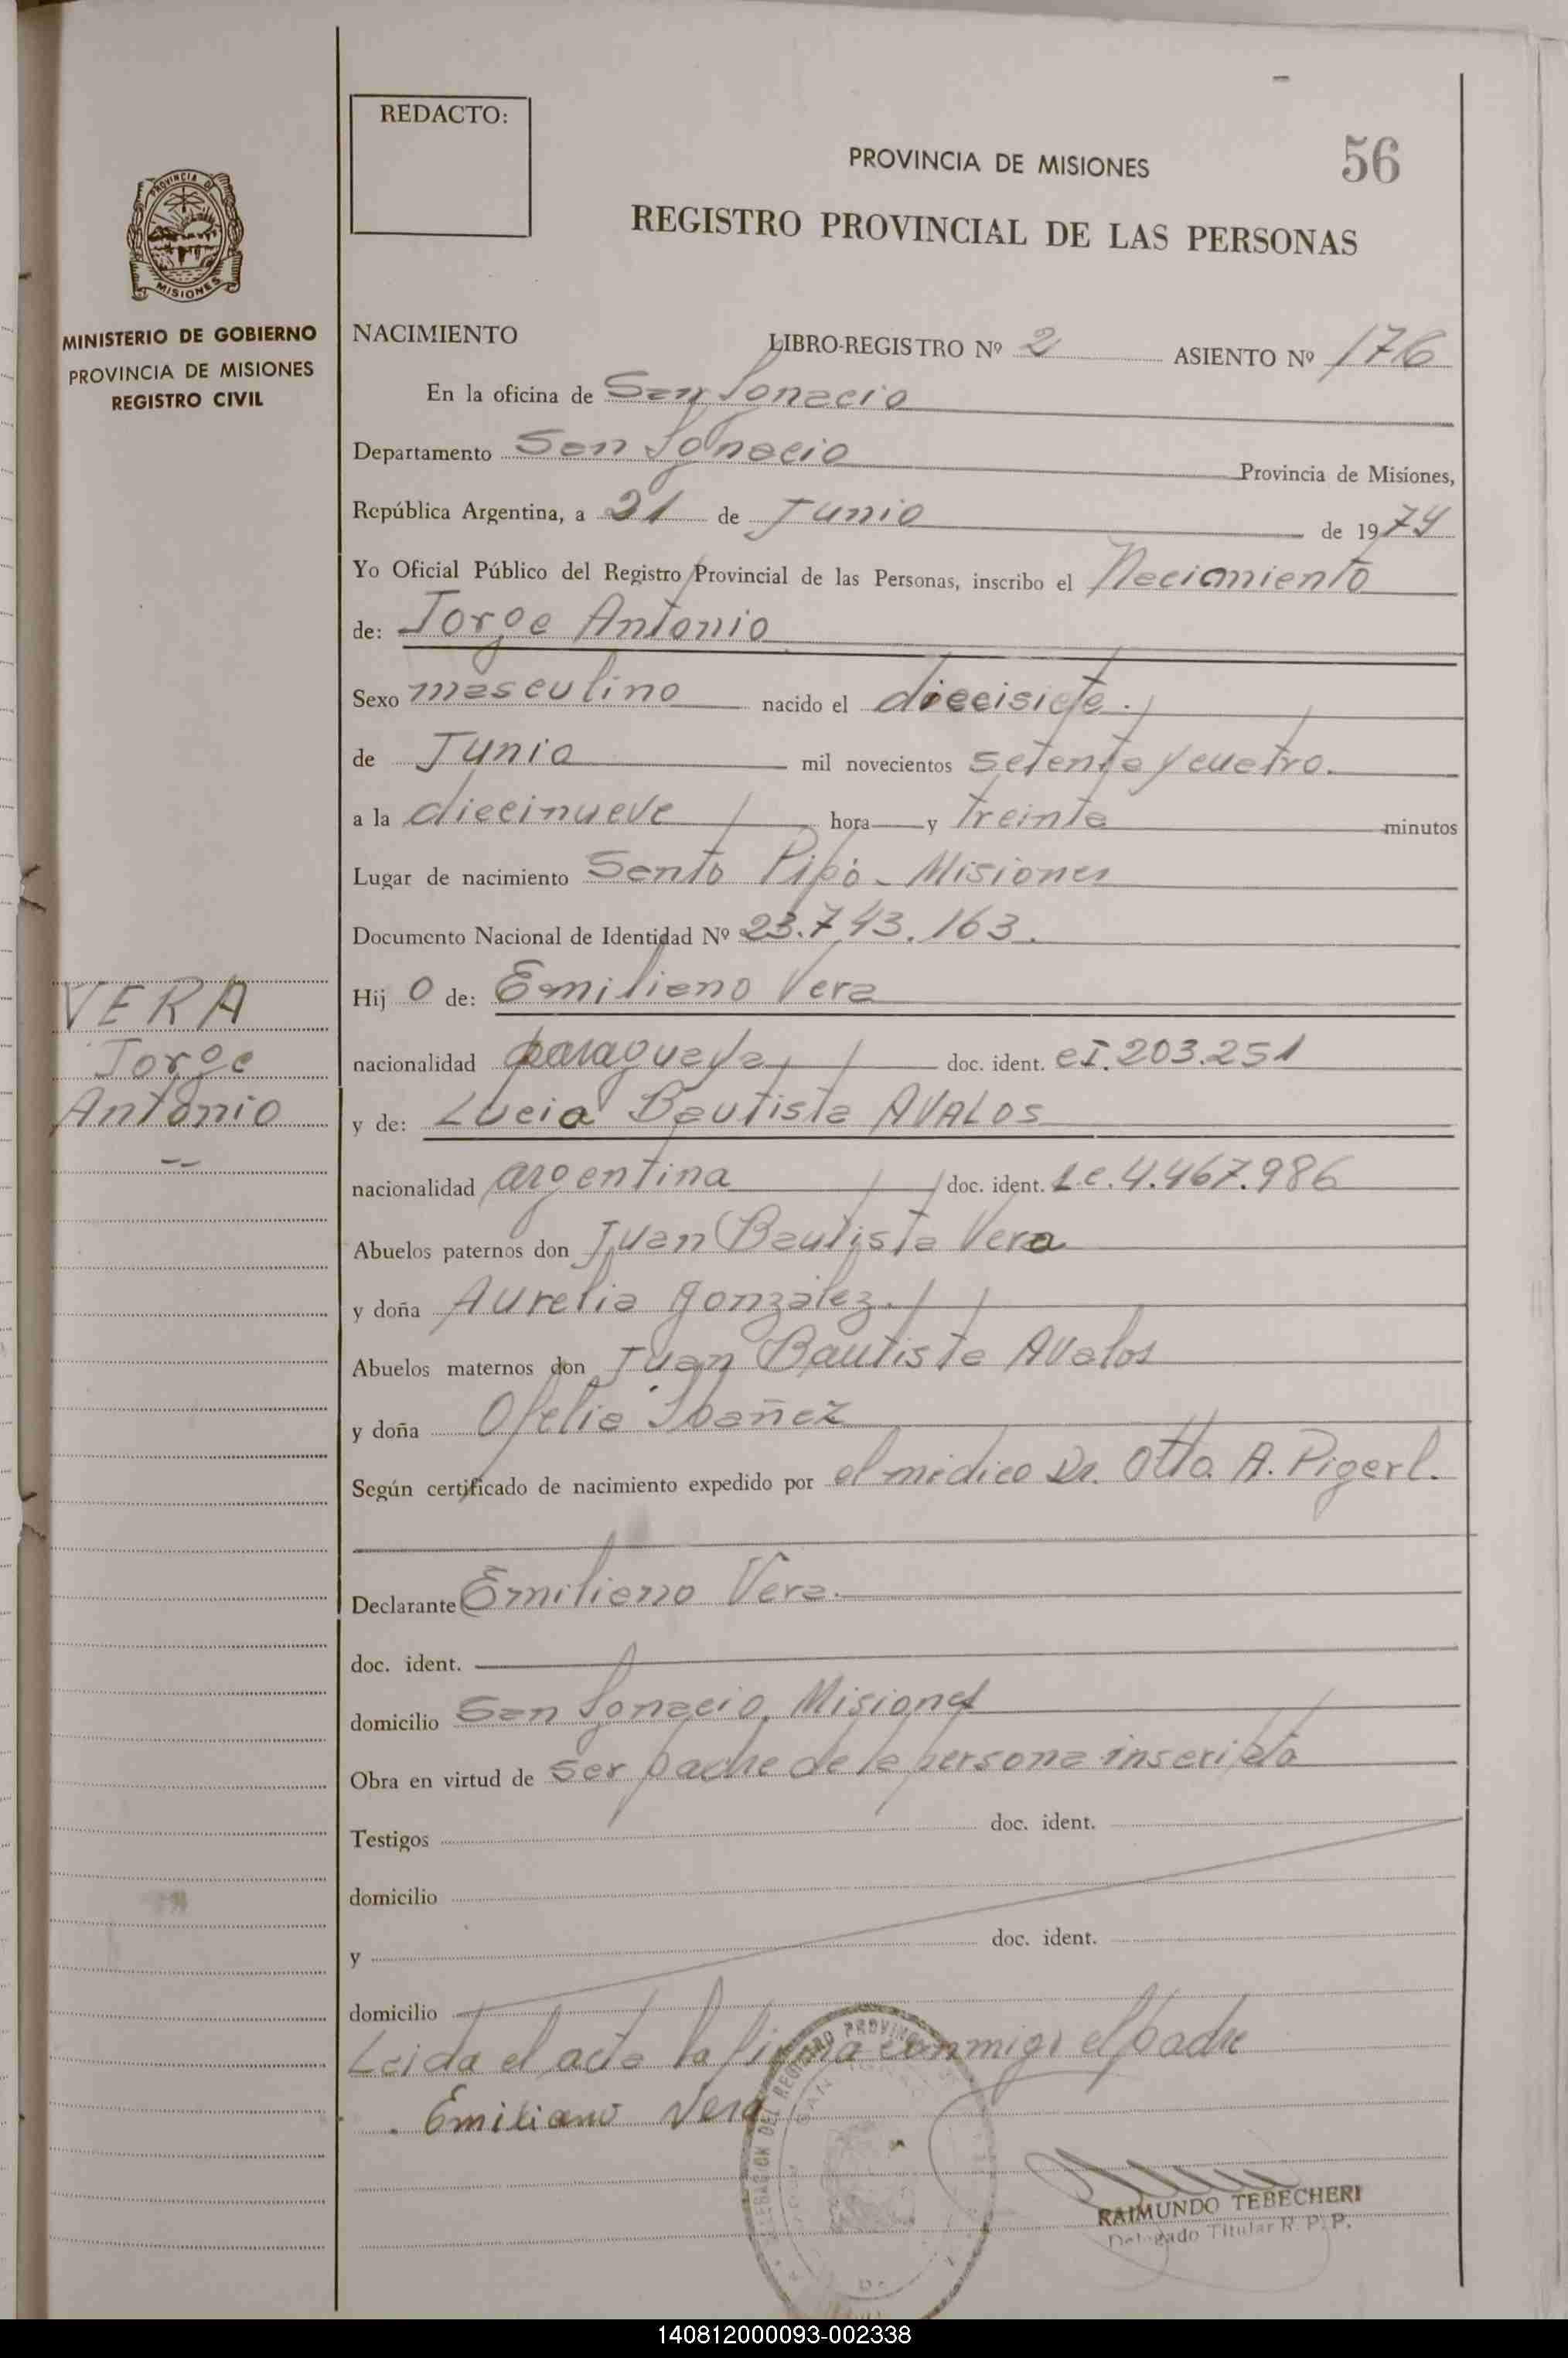 REDACTO:
PROVINCIA DE MISIONES
56
REGISTRO PROVINCIAL DE LAS PERSONAS
PROVINCIA DE
MISIONES
MINISTERIO DE GOBIERNO
PROVINCIA DE MISIONES
REGISTRO CIVIL
NACIMIENTO LIBRO-REGISTRO Nº 2 ASIENTO Nº 176
En la oficina de San Ignacio
Departamento San Ignacio Provincia de Misiones,
República Argentina, a 21 de Junio de 1974
Yo Oficial Público del Registro Provincial de las Personas, inscribo el Nacimiento
de: Jorge Antonio
Sexo masculino nacido el diecisiete.
de Junio mil novecientos setenta y cuatro.
a la diecinueve hora y treinta minutos
Lugar de nacimiento Santo Pipó - Misiones
Documento Nacional de Identidad Nº 23.743.163.
Hij o de: Emiliano Vera
nacionalidad paraguaya doc. ident. CI. 203.251
y de: Lucia Bautista AVALOS
nacionalidad argentina doc. ident. L.C. 4.467.986
Abuelos paternos don Juan Bautista Vera
y doña Aurelia González.
Abuelos maternos don Juan Bautista Avalos
y doña Ofelia Ibañez
Según certificado de nacimiento expedido por el médico Dr. Otto A. Pigerl.
Declarante Emiliano Vera.
doc. ident.
domicilio San Ignacio, Misiones
Obra en virtud de ser padre de la persona inscripta
Testigos doc. ident.
domicilio
y doc. ident.
domicilio
Leida el acta la firma conmigo el padre
Emiliano Vera
RAIMUNDO TEBECHERI
Delegado Titular R. P. P.
VERA
Jorge
Antonio
140812000093-002338